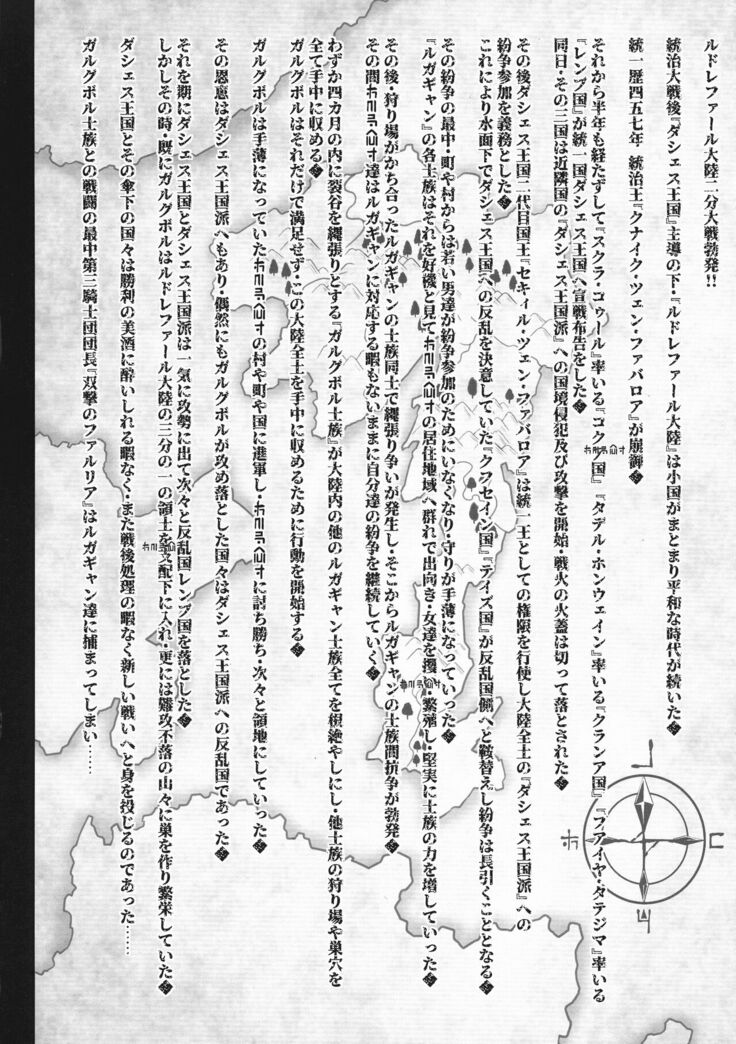 ルドレファール大陸二分大戦勃発!!
統治大戦後『ダシェス王国』主導の下・『ルドレファール大陸』は小国がまとまり平和な時代が続いた
統一歴四五七年 統治王『クナイク・ツェン・ファバロア』が崩御
それから半年も経たずして『スクラ・ゴゥール』率いる『ゴクー国』『タデル・ホンウェイン』率いる『クランア国』『ブアイヤ・タテジマ』率いる
『レンブ国』が統一国ダシェス王国へ宣戦布告をした
同日・その三国は近隣国の『ダシェス王国派』への国境侵犯及び攻撃を開始・戦火の火蓋は切って落とされた
その後ダシェス王国二代目国王『セキィル・ツェン・ファバロア』は統一王としての権限を行使し大陸全土の『ダシェス王国派』への
紛争参加を義務とした
これにより水面下でダシェス王国への反乱を決意していた『クフセイン国』『テイズ国』が反乱国側へと鞍替えし紛争は長引くこととなる
その紛争の最中・町や村からは若い男達が紛争参加のためにいなくなり・守りが手薄になっていった
『ルガギャン』の各士族はそれを好機と見て の居住地域へ群れで出向き・女達を攫い・繁殖し・堅実に士族の力を増していった
その後・狩り場がかち合ったルガギャンの士族同士で縄張り争いが発生し・そこからルガギャンの士族間抗争が勃発
その間 達はルガギャンに対応する暇もないままに自分達の紛争を継続していく
わずか四カ月の内に裂谷を縄張りとする『ガルグボル士族』が大陸内の他のルガギャン士族全てを根絶やしにし・他士族の狩り場や巣穴を
全て手中に収める
ガルグボルはそれだけで満足せず・この大陸全土を手中に収めるために行動を開始する
ガルグボルは手薄になっていた の村や町や国に進軍し・ に討ち勝ち・次々と領地にしていった
その恩恵はダシェス王国派へもあり・偶然にもガルグボルが攻め落とした国々はダシェス王国派への反乱国であった
それを期にダシェス王国とダシェス王国派は一気に攻勢に出て次々と反乱国レンブ国を落とした
しかしその時・既にガルグボルはルドレファール大陸の三分の一の領土を支配下に入れ・更には難攻不落の山々に巣を作り繁栄していた
ダシェス王国とその傘下の国々は勝利の美酒に酔いしれる暇なく・また戦後処理の暇なく新しい戦いへと身を投じるのであった……
ガルグボル士族との戦闘の最中第三騎士団団長『双撃のファルリア』はルガギャン達に捕まってしまい……